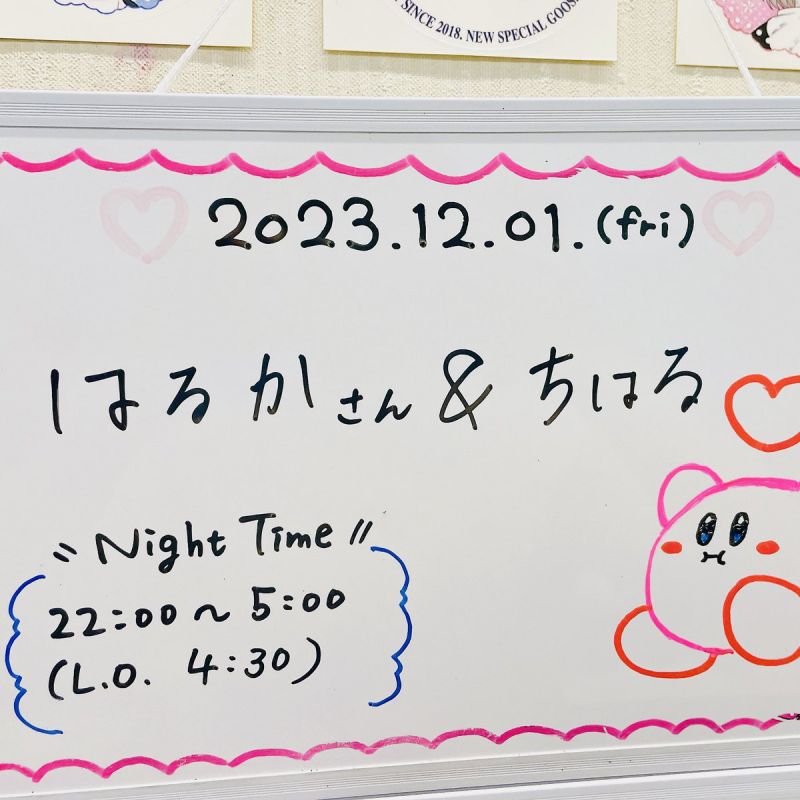 SINCE 2018. NEW SPECIAL GOOS
2023.12.01.(fri)
はるかさん & ちはる
〃Night Time〃
22:00〜5:00
(L.O. 4:30)